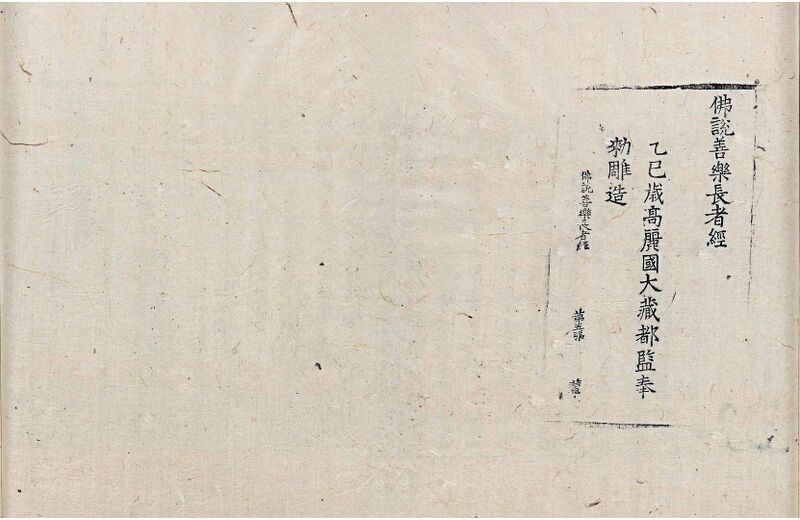 佛說善樂長者經
乙巳歲高麗國大藏都監奉
勑雕造
佛說善樂長者經
第五張